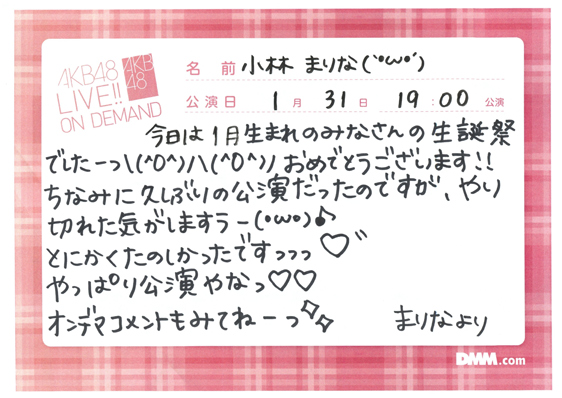 AKB48
LIVE!!
ON DEMAND
AKB
48
名 前 小林 まりな(`•ω•´)
公演日 1月 31日 19:00 公演
今日は1月生まれのみなさんの生誕祭
でしたーっ\(^O^)/\(^O^)/ おめでとうございます!!
ちなみに久しぶりの公演だったのですが、やり
切れた気がしますうー(•ω•)♪
とにかくたのしかったですっっっ♡゛
やっぱり公演やなっ♡♡
オンデマコメントもみてねーっ✧✧ まりなより
DMM.com